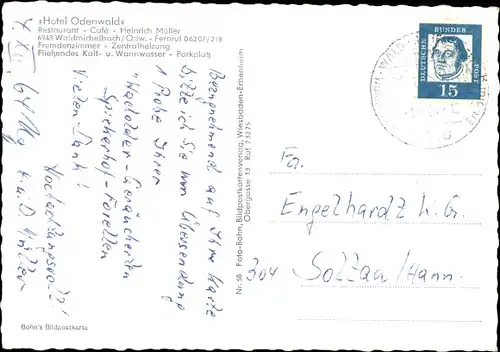 »Hotel Odenwald«
Restaurant - Café - Heinrich Müller
6948 Waldmichelbach/Odw. - Fernruf 06207/218
Fremdenzimmer - Zentralheizung
Fließendes Kalt- u. Warmwasser - Parkplatz
Bezugnehmend auf Ihre Karte
bitte ich Sie um Übersendung
1 Probe Ihrer
"Wacholder-Geräucherten
Speicherhof-Forellen
Vielen Dank!
Hochachtungsvoll!
Müller
Nr. 58 Foto-Bohn, Bildpostkartenverlag, Wiesbaden-Erbenheim
Obergasse 13 Ruf 73275
Bohn's Bildpostkarte
DEUTSCHE
BUNDES
POST
15
Fa.
Engelhardt
304 Soltau/Hann.